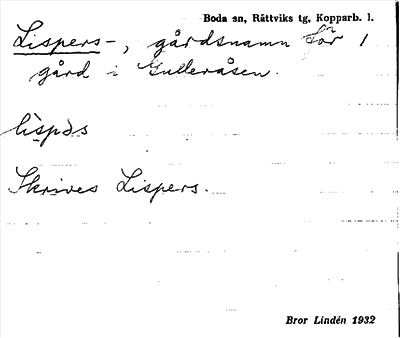 Boda sn, Rättviks tg, Kopparb. l.
Lispers-, gårdsnamn för 1
gård i Gulleråsen.
lìspəs
Skrives Lispers.
Bror Lindén 1932